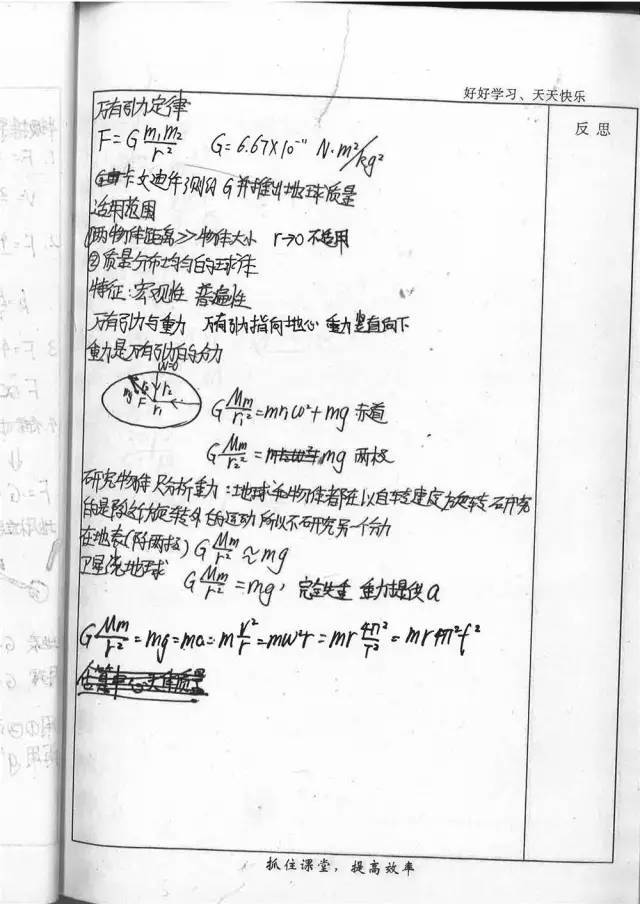 好好学习、天天快乐
反思
万有引力定律
F=G m₁m₂/r² G=6.67×10⁻¹¹ N·m²/kg²
由卡文迪许测的G并推出地球质量
适用范围
①两物体距离≫物体大小 r→0不适用
②质量分布均匀的球体
特征:宏观性 普遍性
万有引力与重力 万有引力指向地心 重力竖直向下
重力是万有引力的分力
ω=0
mg F r₂ r₁
G Mm/r₁²=mr₁ω²+mg 赤道
G Mm/r₂²=mg 两极
研究物体只分析重力:地球和物体都在以自转速度旋转 研究
的是除这个旋转外的运动 所以不研究另一个分力
在地表(除两极) G Mm/r²≈mg
卫星绕地球 G Mm/r²=mg, 完全失重 重力提供a
G Mm/r²=mg=ma=m v²/r=mω²r=mr 4π²/T²=mr4π²f²
抓住课堂,提高效率